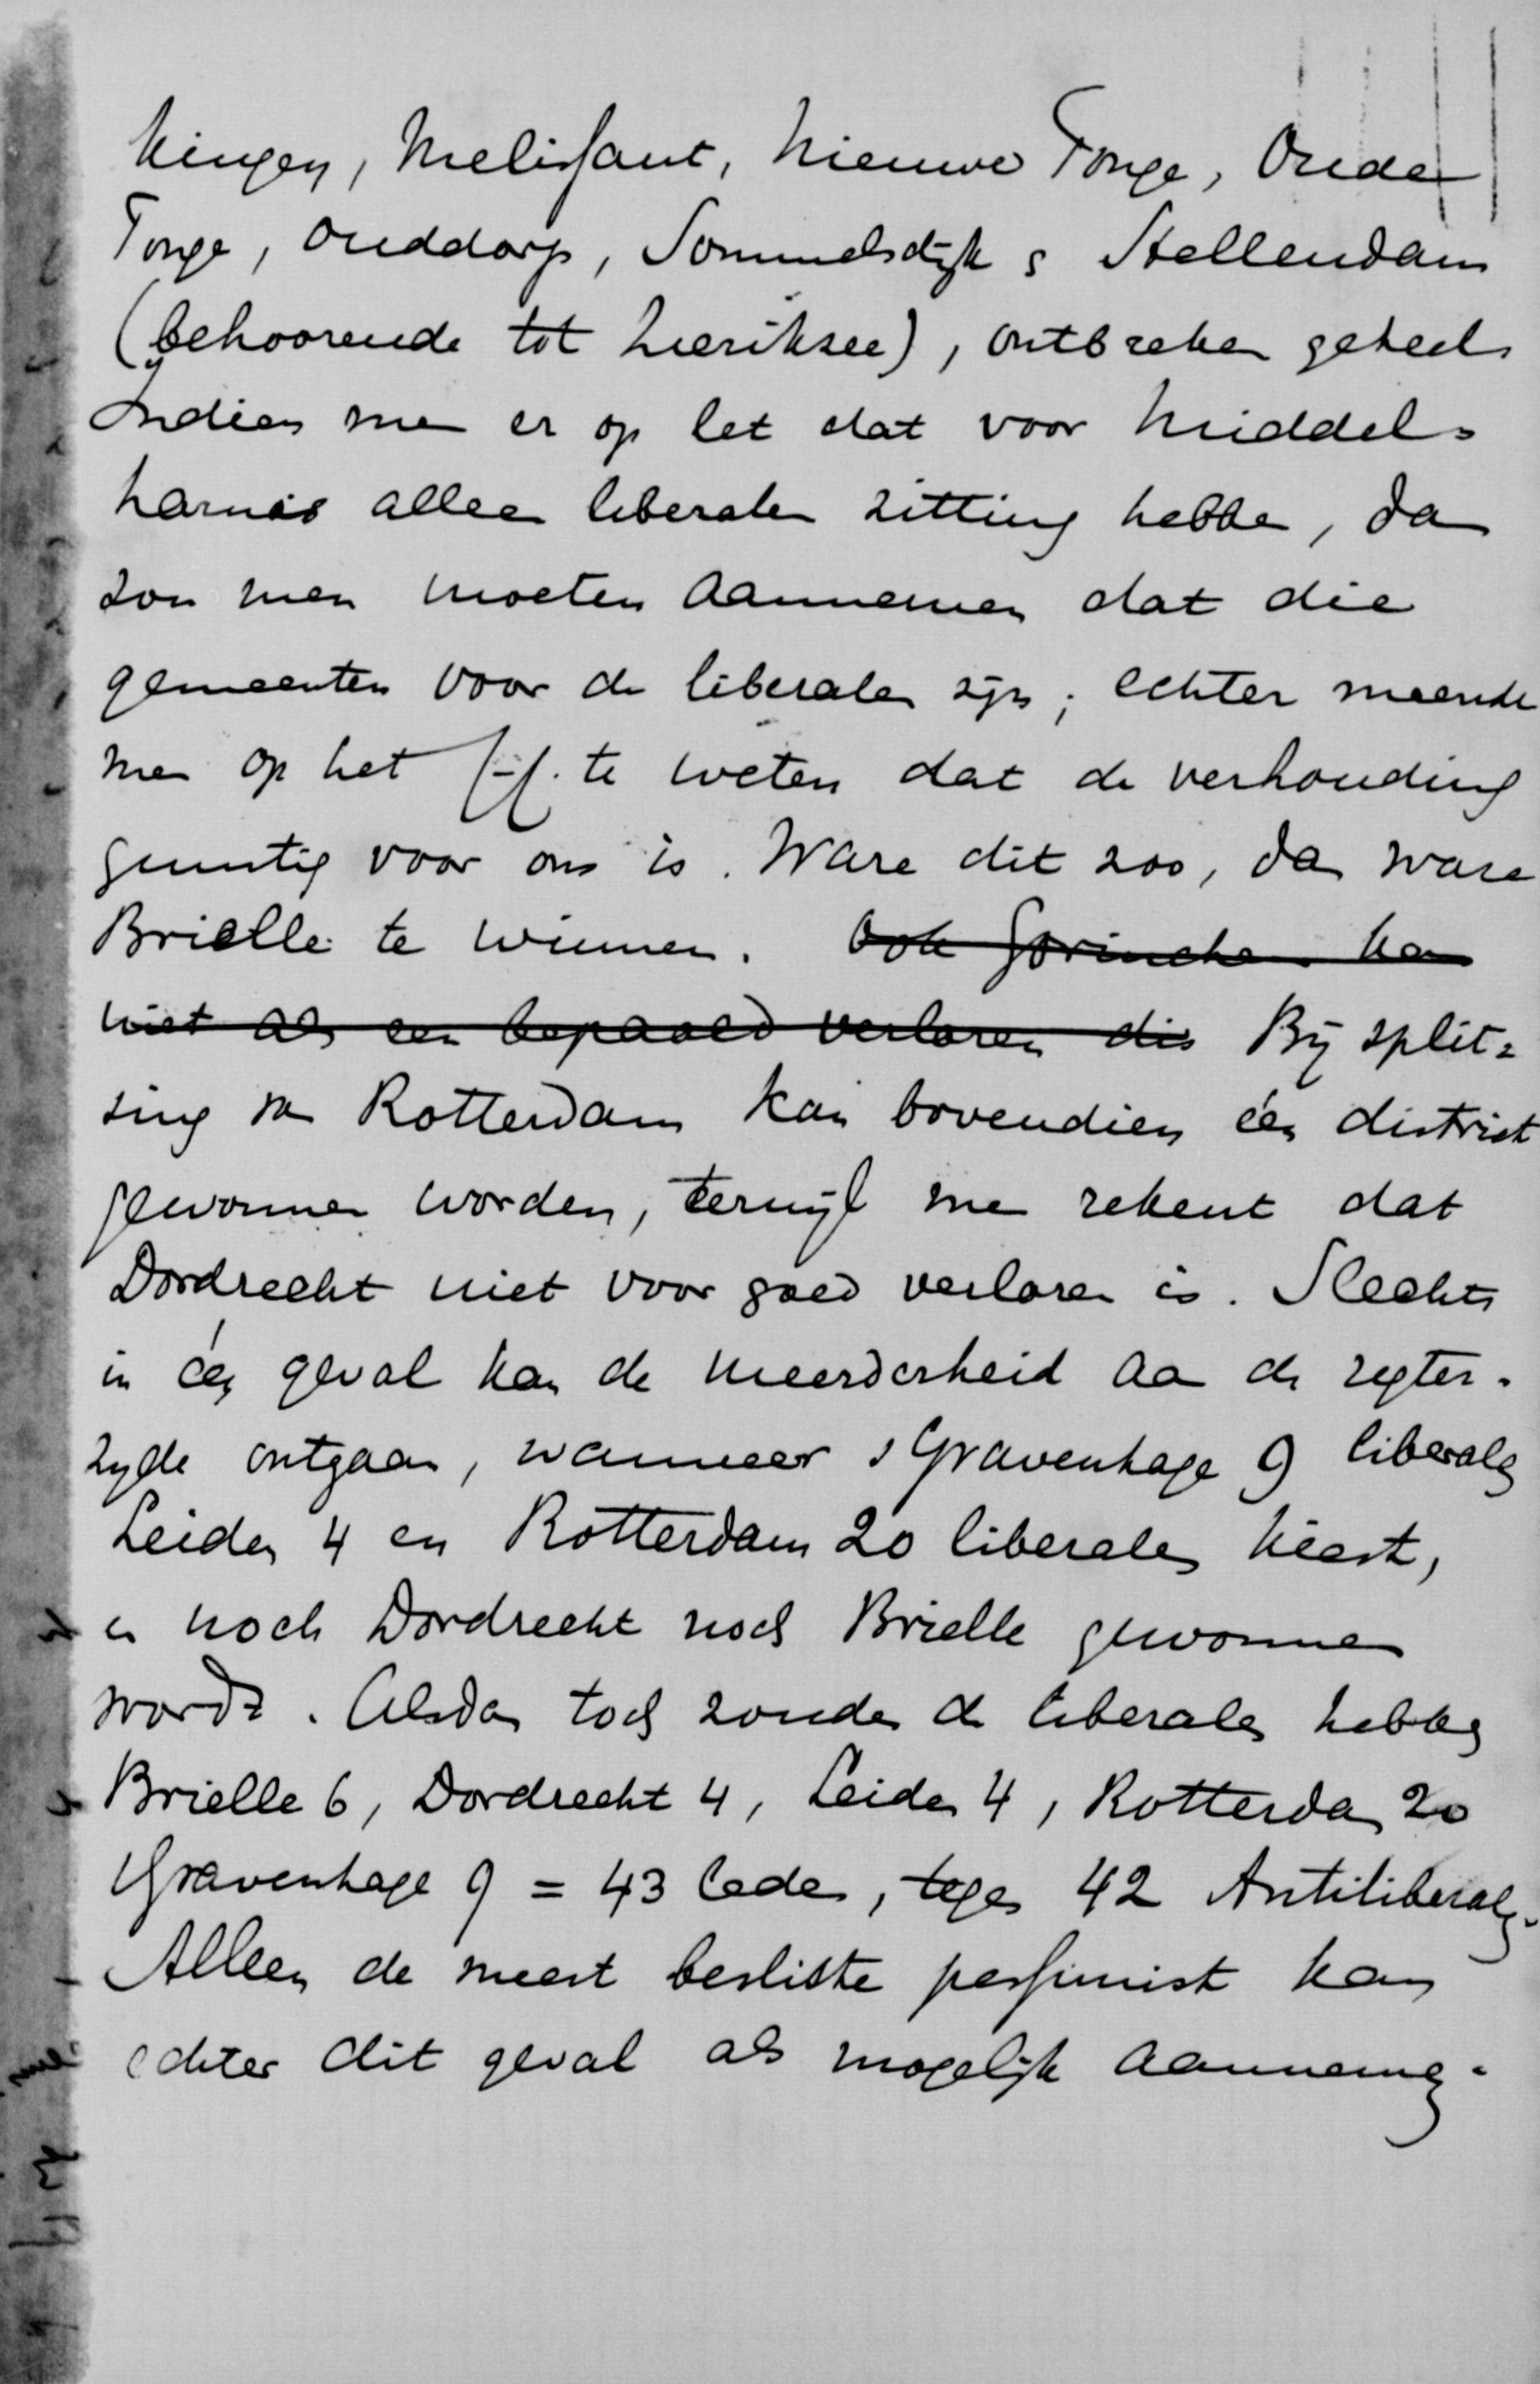 kingen, Melissant, Nieuwe Tonge, Oude
Tonge, Ouddorp, Sommelsdijk & Stellendam
(behoorende tot Zierikzee), ontbreken geheel.
Indien men er op let dat voor Middel=
harnis alleen liberalen zitting hebben, dan
zou men moeten aannemen dat die
gemeenten voor de liberalen zijn; echter meende
men op het te weten dat de verhouding
gunstig voor ons is. Ware dit zoo, dan ware
Brielle te winnen. Ook Gorinchem kan
niet als een bepaald verloren dis Bij split=
sing van Rotterdam kan bovendien één district
gewonnen worden, terwijl men rekent dat
Dordrecht niet voor goed verloren is. Slechts
in één geval kan de meerderheid aan de regter-
zijde ontgaan, wanneer sGravenhage 9 liberalen
Leiden 4 en Rotterdam 20 liberalen kiest,
en noch Dordrecht noch Brielle gewonnen
wordt. Alsdan toch zouden de liberalen hebben
Brielle 6, Dordrecht 4, Leiden 4, Rotterdam 20
sGravenhage 9 = 43 leden, tegen 42 Antiliberalen.
Alleen de meest besliste pessimist kan
echter dit geval als mogelijk aannemen.